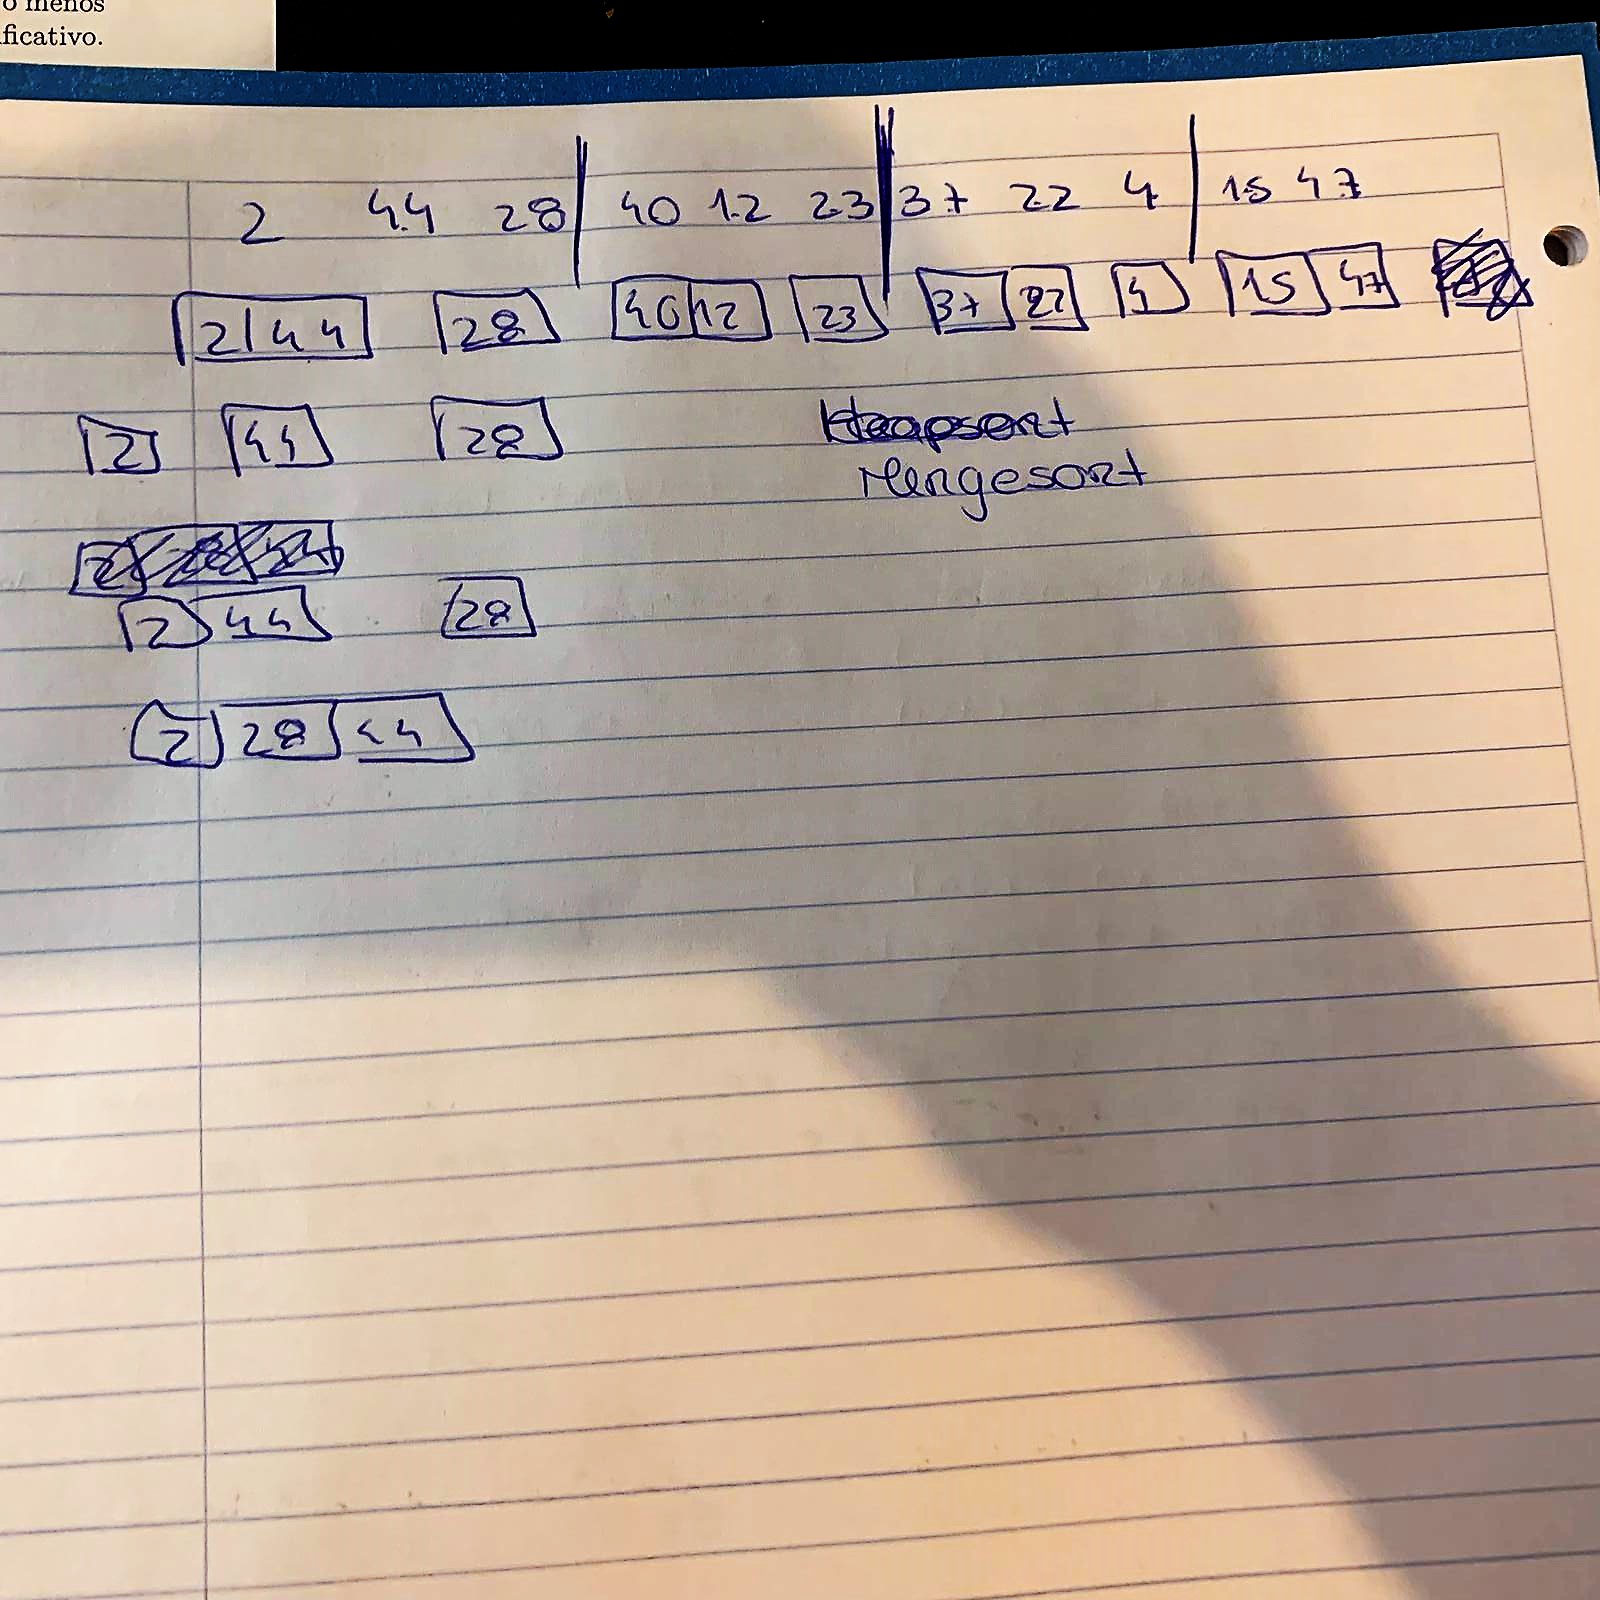 o menos
ficativo.
2 44 28 40 12 23 37 22 4 15 47
2 44 28 40 12 23 37 22 4 15 47
2 44 28
Heapsort
Mergesort
2 44 28
2 28 44